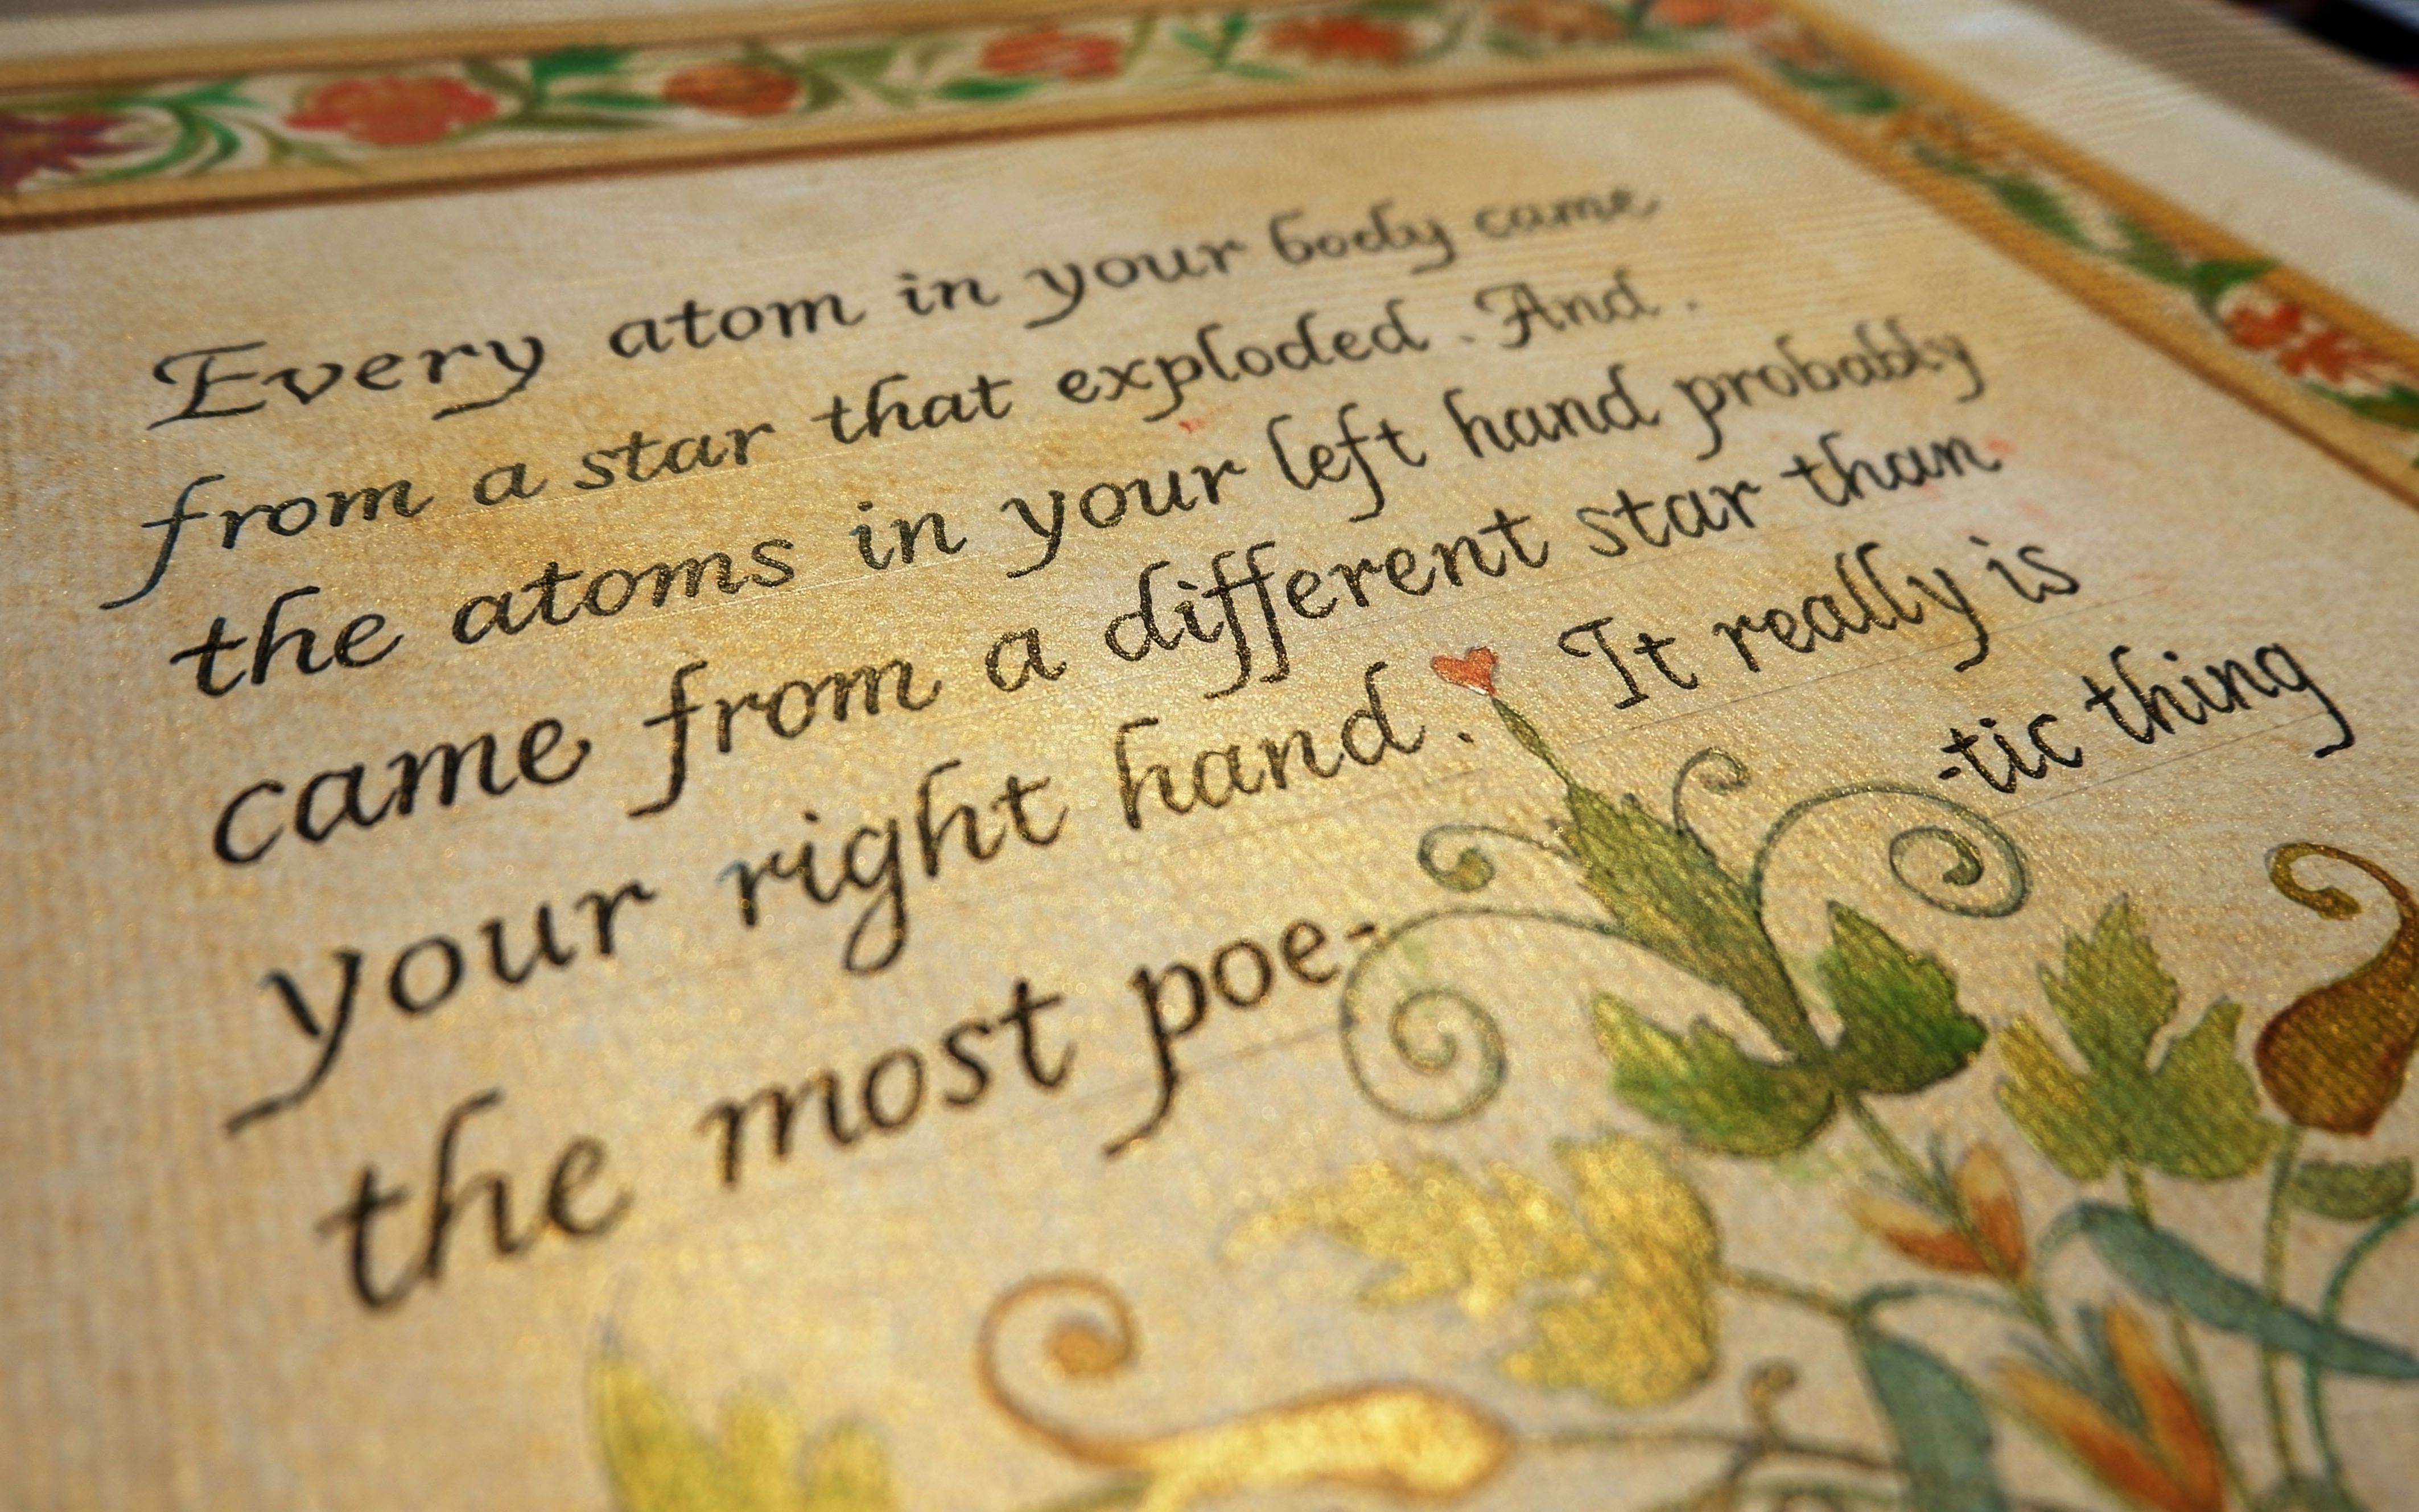 Every atom in your body came
from a star that exploded. And.
the atoms in your left hand probably
came from a different star than
your right hand. It really is
the most poe- -tic thing